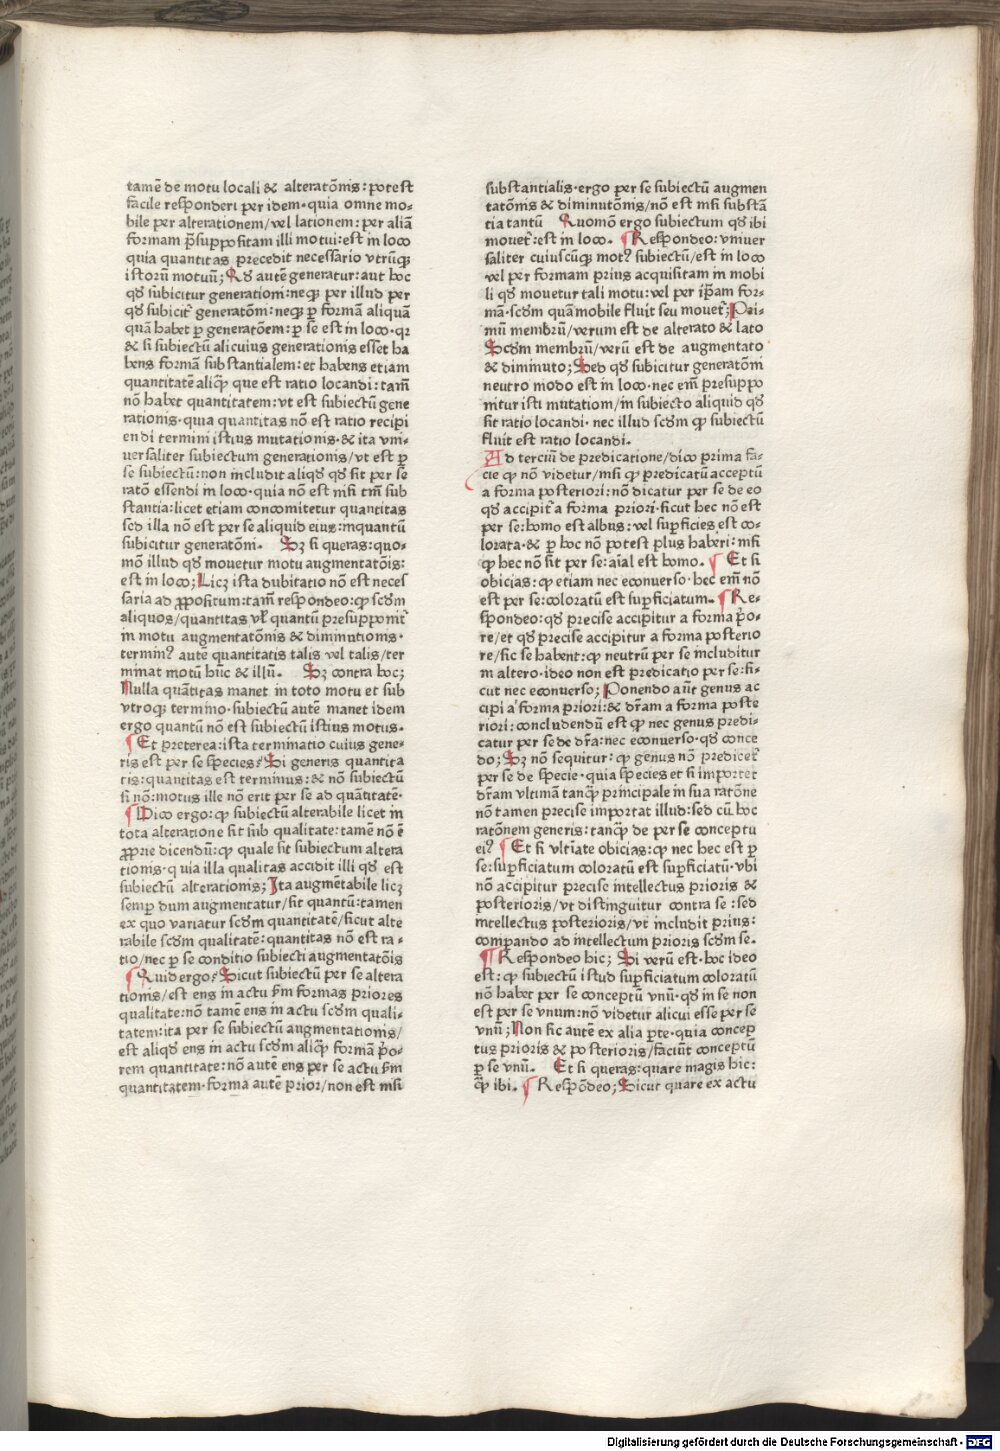 tamē de motu locali & alteratōnis: potest
facile responderi per idem·quia omne mo⸗
bile per alterationem/vel lationem: per aliā
formam p̄suppositam illi motui: est in loco
quia quantitas precedit necessario vtrūqꝫ
istorū motuū; Qd̛ autē generatur: aut hoc
qd̛ subicitur generationi: neqꝫ per illud per
qd̛ subicit᷑ generatōni: neqꝫ ꝑ formā aliquā
quā habet ꝑ generatōem: ꝑ se est in loco·qꝛ
& si subiectū alicuius generationis esset ha
bens formā substantialem: et habens etiam
quantitatē aliqꝫ̄ que est ratio locandi: tam̄
nō habet quantitatem: vt est subiectū gene
rationis·quia quantitas nō est ratio recipi
endi termini istius mutationis·& ita vni⸗
uersaliter subiectum generationis/vt est ꝑ
se subiectū: non includit aliqd̛ qd̛ sit per se
ratō essendi in loco·quia nō est nisi tm̄ sub
stantia: licet etiam concomitetur quantitas
sed illa nō est per se aliquid eius: inquantū
subicitur generatōni. Sꝫ si queras: quo⸗
mō illud qd̛ mouetur motu augmentatōis:
est in loco; Licꝫ ista dubitatio nō est neces
saria ad ꝓpositum: tam̄ respondeo: ꝙ scd̛m
aliquos/quantitas vl̛ quantū presupponit᷑
in motu augmentatōnis & diminutionis·
terminꝰ autē quantitatis talis vel talis/ter
minat motū hūc & illū. Sꝫ contra hoc;
Nulla quātitas manet in toto motu et sub
vtroqꝫ termino·subiectū autē manet idem
ergo quantū nō est subiectū istius motus.
¶ Et preterea: ista terminatio cuius gene⸗
ris est per se species? Si generis quantita
tis: quantitas est terminus: & nō subiectū
si nō: motus ille nō erit per se ad quātitatē·
¶ Dico ergo: ꝙ subiectū alterabile licet in
tota alteratione sit sub qualitate: tamē nō ē
ꝓprie dicendū: ꝙ quale sit subiectum altera
tionis·quia illa qualitas accidit illi qd̛ est
subiectū alterationis; Ita augmētabile licꝫ
semꝑ dum augmentatur/sit quantū: tamen
ex quo variatur scd̛m quantitatē/sicut alte
rabile scd̛m qualitatē: quantitas nō est ra⸗
tio/nec ꝑ se conditio subiecti augmentatōis
¶ Quid ergo? Sicut subiectū per se altera
tionis/est ens in actu s̄m formas priores
qualitate: nō tamē ens in actu scd̛m quali⸗
tatem: ita per se subiectū augmentationis/
est aliqd̛ ens in actu scd̛m aliqꝫ̄ formā p̄o⸗
rem quantitate: nō autē ens per se actu s̄m
quantitatem·forma autē prior/non est nisi
substantialis·ergo per se subiectū augmen
tatōnis & diminutōnis/nō est nisi substā
tia tantū Quomō ergo subiectum qd̛ ibi
mouet᷑: est in loco. ¶ Respondeo: vniuer
saliter cuiuscūqꝫ motꝰ subiectū/est in loco
vel per formam prius acquisitam in mobi
li qd̛ mouetur tali motu: vel per ip̄am for⸗
mā·scd̛m quā mobile fluit seu mouet᷑; Pri⸗
mū membrū/verum est de alterato & lato
Scd̛m membrū/verū est de augmentato
& diminuto; Sed qd̛ subicitur generatōni
neutro modo est in loco·nec em̄ presuppo
nitur isti mutationi/in subiecto aliquid qd̛
sit ratio locandi·nec illud scd̛m qꝫ subiectū
fluit est ratio locandi.
Ad terciū de predicatione/dico prima fa⸗
cie ꝙ nō videtur/nisi ꝙ predicatū acceptū
a forma posteriori: nō dicatur per se de eo
qd̛ accipit᷑ a forma priori·sicut hec nō est
per se: homo est albus: vel suꝑficies est co⸗
lorata·& ꝑ hoc nō potest plus haberi: nisi
ꝙ hec nō sit per se: aīal est homo. ¶ Et si
obicias: ꝙ etiam nec econuerso·hec em̄ nō
est per se: coloratū est suꝑficiatum. ¶ Re⸗
spondeo: qd̛ precise accipitur a forma p̄o⸗
re/et qd̛ precise accipitur a forma posterio
re/sic se habent: ꝙ neutrū per se includitur
in altero·ideo non est predicatio per se: si⸗
cut nec econuerso; Ponendo aūt genus ac
cipi a forma priori: & dr̄am a forma poste
riori: concludendū est ꝙ nec genus predi⸗
catur per se de dr̄a: nec econuerso·qd̛ conce
do; Sꝫ nō sequitur: ꝙ genus nō predicet᷑
per se de specie·quia species et si importet
dr̄am vltimā tanqꝫ̄ principale in sua ratōne
nōn tamen precise importat illud: sed cū hoc
ratōnem generis: tanqꝫ̄ de per se conceptu
eiꝰ ¶ Et si vltīate obicias: ꝙ nec hec est ꝑ
se: suꝑficiatum coloratū est suꝑficiatū·vbi
nō accipitur precise intellectus prioris &
posterioris/vt distinguitur contra se: sed
intellectus posterioris/vt includit prius:
comꝑando ad intellectum prioris scd̛m se.
¶ Respondeo hic; Si verū est·hoc ideo
est: ꝙ subiectū istud suꝑficiatum coloratū
nō habet per se conceptū vnū·qd̛ in se non
est per se vnum: nō videtur alicui esse per se
vnū; Non sic autē ex alia ꝑte·quia concep
tus prioris & posterioris/faciūt conceptū
ꝑ se vnū. Et si queras: quare magis hic:
qꝫ̄ ibi. ¶ Respōdeo; Sicut quare ex actu
Digitalisierung gefördert durch die Deutsche Forschungsgemeinschaft - DFG